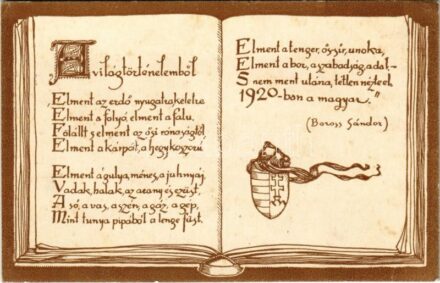 A világtörténelemből
„Elment az erdő nyugatra, keletre
Elment s folyó, elment a falu,
Felállt s elment az ősi rónaságtól
Elment a Kárpát, a hegykoszorú
Elment a gulya, ménes, a juhnyáj,
Vadak, halak, az arany és ezüst,
A só, a vas, a szén, a gőz, a gép,
Mint tunya pipából a lenge füst.
Elment a tenger, ős sír, unoka,
Elment a bor, a szabadság, a dal, –
S nem ment utána, tétlen nézte el
1920-ban a magyar."
(Boross Sándor)